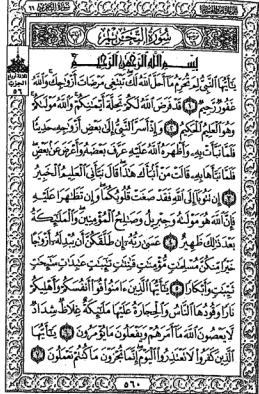 سُورَةُ التَّحْرِيمِ
بِسْمِ ٱللَّهِ ٱلرَّحْمَٰنِ ٱلرَّحِيمِ
يَٰٓأَيُّهَا ٱلنَّبِيُّ لِمَ تُحَرِّمُ مَآ أَحَلَّ ٱللَّهُ لَكَ تَبْتَغِى مَرْضَاتَ أَزْوَٰجِكَ وَٱللَّهُ
غَفُورٌ رَّحِيمٌ ١ قَدْ فَرَضَ ٱللَّهُ لَكُمْ تَحِلَّةَ أَيْمَٰنِكُمْ وَٱللَّهُ مَوْلَىٰكُمْ
وَهُوَ ٱلْعَلِيمُ ٱلْحَكِيمُ ٢ وَإِذْ أَسَرَّ ٱلنَّبِيُّ إِلَىٰ بَعْضِ أَزْوَٰجِهِۦ حَدِيثًا
فَلَمَّا نَبَّأَتْ بِهِۦ وَأَظْهَرَهُ ٱللَّهُ عَلَيْهِ عَرَّفَ بَعْضَهُۥ وَأَعْرَضَ عَنۢ بَعْضٍ
فَلَمَّا نَبَّأَهَا بِهِۦ قَالَتْ مَنْ أَنۢبَأَكَ هَٰذَا قَالَ نَبَّأَنِىَ ٱلْعَلِيمُ ٱلْخَبِيرُ
٣ إِن تَتُوبَآ إِلَى ٱللَّهِ فَقَدْ صَغَتْ قُلُوبُكُمَا وَإِن تَظَٰهَرَا عَلَيْهِ
فَإِنَّ ٱللَّهَ هُوَ مَوْلَىٰهُ وَجِبْرِيلُ وَصَٰلِحُ ٱلْمُؤْمِنِينَ وَٱلْمَلَٰٓئِكَةُ
بَعْدَ ذَٰلِكَ ظَهِيرٌ ٤ عَسَىٰ رَبُّهُۥٓ إِن طَلَّقَكُنَّ أَن يُبْدِلَهُۥٓ أَزْوَٰجًا
خَيْرًا مِّنكُنَّ مُسْلِمَٰتٍ مُّؤْمِنَٰتٍ قَٰنِتَٰتٍ تَٰٓئِبَٰتٍ عَٰبِدَٰتٍ سَٰٓئِحَٰتٍ
ثَيِّبَٰتٍ وَأَبْكَارًا ٥ يَٰٓأَيُّهَا ٱلَّذِينَ ءَامَنُوا۟ قُوٓا۟ أَنفُسَكُمْ وَأَهْلِيكُمْ
نَارًا وَقُودُهَا ٱلنَّاسُ وَٱلْحِجَارَةُ عَلَيْهَا مَلَٰٓئِكَةٌ غِلَاظٌ شِدَادٌ
لَّا يَعْصُونَ ٱللَّهَ مَآ أَمَرَهُمْ وَيَفْعَلُونَ مَا يُؤْمَرُونَ ٦ يَٰٓأَيُّهَا
ٱلَّذِينَ كَفَرُوا۟ لَا تَعْتَذِرُوا۟ ٱلْيَوْمَ إِنَّمَا تُجْزَوْنَ مَا كُنتُمْ تَعْمَلُونَ ٧
٥٦٠